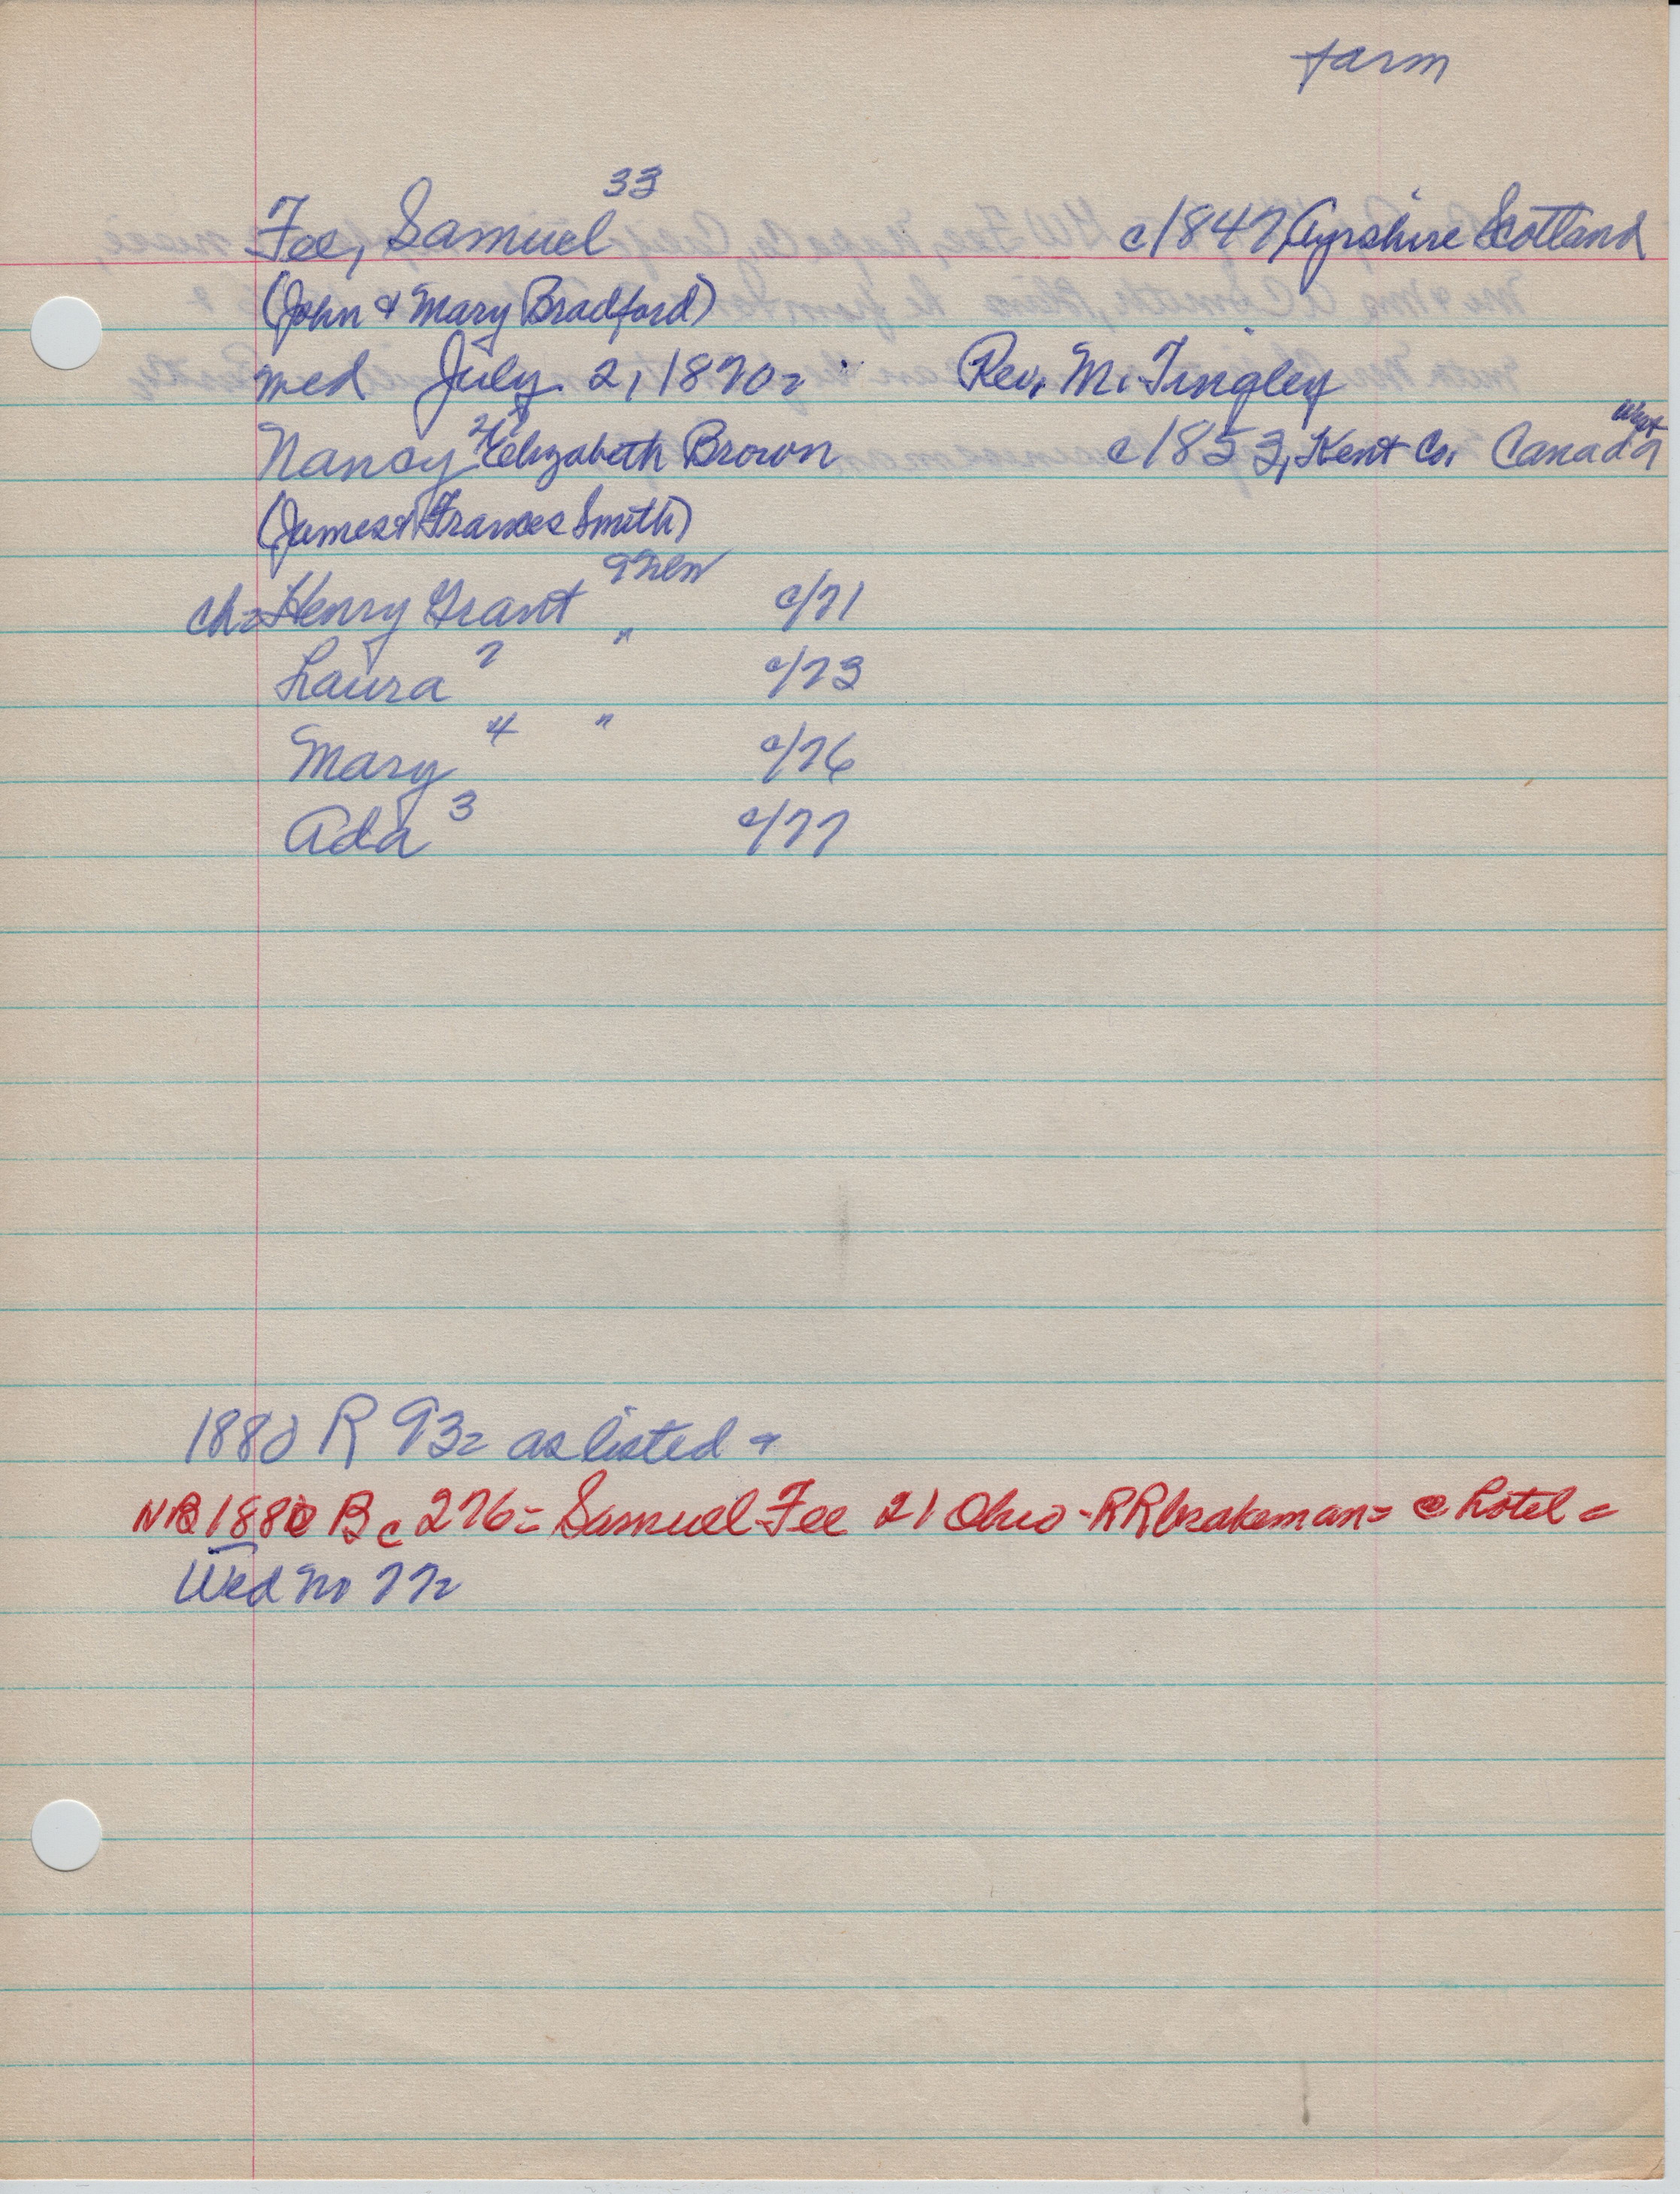 farm
33
Fee, Samuel c1847, Ayrshire Scotland
(John & Mary Bradford)
wed July 2, 1870= Rev. M. Tingley
West
Nancy 27 Elizabeth Brown c1853, Kent Co. Canada
(James & Frances Smith)
ch= Henry Grant 9 c/71
Laura 7 " c/73
Mary 4 " c/76
Ada 3 c/77
1880 R 93= as listed =
NB 1880 Bc 276= Samuel Fee 21 Ohio - RR brakeman= @ hotel =
Wed no 77=